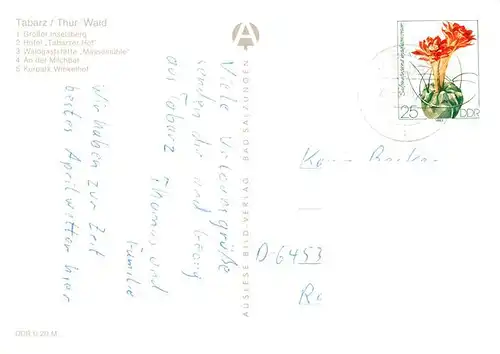 Tabarz / Thür. Wald
1 Großer Inselsberg
2 Hotel „Tabarzer Hof"
3 Waldgaststätte „Massemühle"
4 An der Milchbar
5 Kurpark Winkelhof
Viele Urlaubsgrüße
senden dir und Georg
aus Tabarz Thomas und
Familie
Wir haben zur Zeit
bestes Aprilwetter hier
AUSLESE BILD-VERLAG BAD SALZUNGEN
25 DDR
D-6453